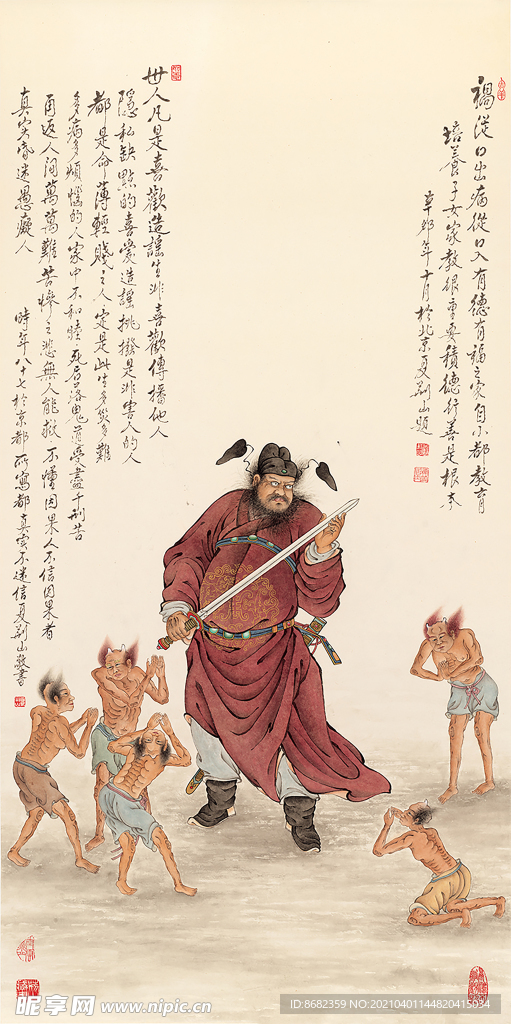 祸从口出病从口入有德有福之家自小都教育
培养子女家教很重要积德行善是根本
辛卯年十月於北京夏荆山题
世人凡是喜歡造謡生非喜歡傳播他人
隱私缺點的喜愛造謡挑撥是非害人的人
都是命薄輕賤之人定是此生多災多難
多病多煩惱的人家中不和睦死后落鬼道受盡千刑苦
再返人间萬萬難苦惨之悲無人能救不懂因果人不信因果者
真实昏迷愚癡人
時年八十七於京都所寫都真实不迷信夏荆山敬書
昵享网 www.nipic.cn
ID:8682359 NO:20210401144820415034